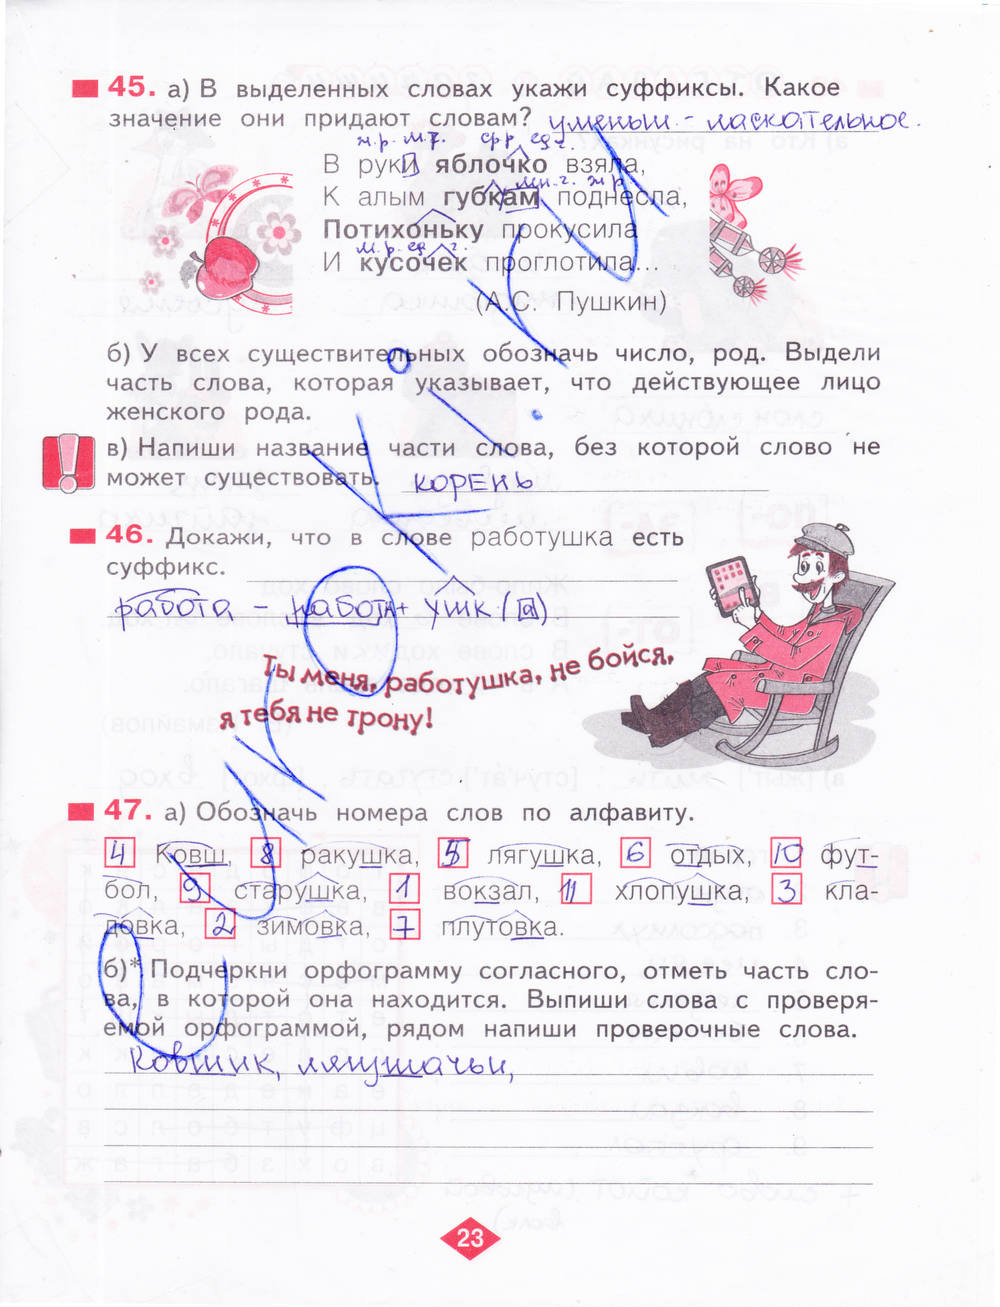 45. а) В выделенных словах укажи суффиксы. Какое
значение они придают словам? уменьш - ласкательное.
ж.р. м.ч. ср.р. ед.ч.
В руки яблочко взяла,
мн.ч. ж.р.
К алым губкам поднесла,
Потихоньку прокусила
м.р. ед. ч.
И кусочек проглотила...
(А.С. Пушкин)
б) У всех существительных обозначь число, род. Выдели
часть слова, которая указывает, что действующее лицо
женского рода.
в) Напиши название части слова, без которой слово не
может существовать. корень
46. Докажи, что в слове работушка есть
суффикс.
работа - работа + ушк (а)
Ты меня, работушка, не бойся,
я тебя не трону!
47. а) Обозначь номера слов по алфавиту.
4 Ковш, 8 ракушка, 5 лягушка, 6 отдых, 10 фут-
бол, 9 старушка, 1 вокзал, 11 хлопушка, 3 кла-
довка, 2 зимовка, 7 плутовка.
б)* Подчеркни орфограмму согласного, отметь часть сло-
ва, в которой она находится. Выпиши слова с проверя-
емой орфограммой, рядом напиши проверочные слова.
Ковшик, лягушачьи,
23